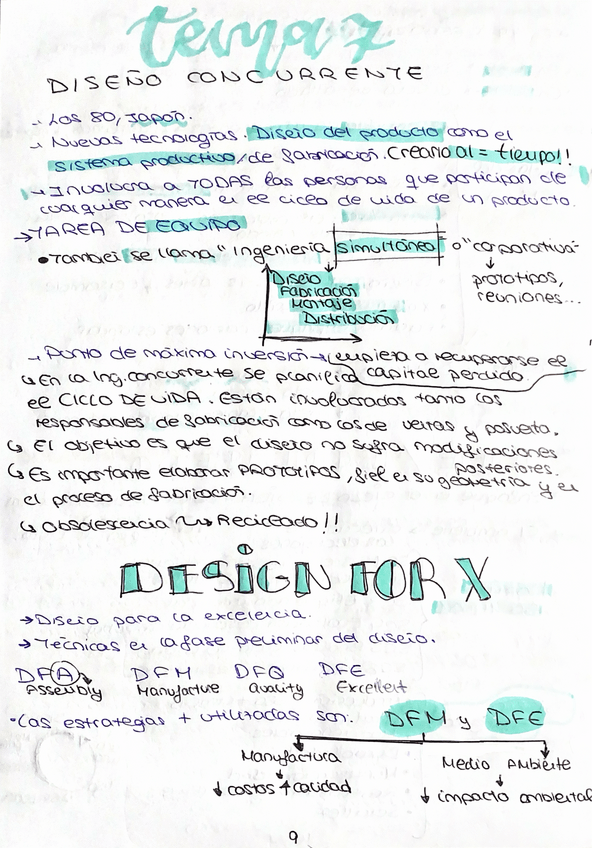 tema 7
DISEÑO CONCURRENTE
→ Los 80, Japón.
→ Nuevas tecnologías. Diseño del producto como el
sistema productivo/de fabricación. Crearlo al = tiempo!!
→ Involucra a TODAS las personas que participan de
cualquier manera en el ciclo de vida de un producto.
→ TAREA DE EQUIPO
• También se llama "Ingeniería simultánea" o "corporativa"
↓
prototipos,
reuniones...
Diseño
Fabricación
Montaje
Distribución
→ Punto de máxima inversión → empieza a recuperarse el
capital perdido.
↳ En la Ing. concurrente se planifica
el CICLO DE VIDA. Están involucrados tanto los
responsables de fabricación como los de ventas y posventa.
↳ El objetivo es que el diseño no sufra modificaciones
posteriores.
↳ Es importante elaborar PROTOTIPOS, fiel en su geometría y en
el proceso de fabricación.
↳ Obsolescencia ↳ Reciclado!!
DESiGN FOR X
→ Diseño para la excelencia.
→ Técnicas en la fase preliminar del diseño.
DFA DFM DFQ DFE
Assembly Manufacture Quality Excellent
• Las estrategias + utilizadas son: DFM y DFE
Manufactura Medio Ambiente
↓ costos ↑ calidad ↓ impacto ambiental
9